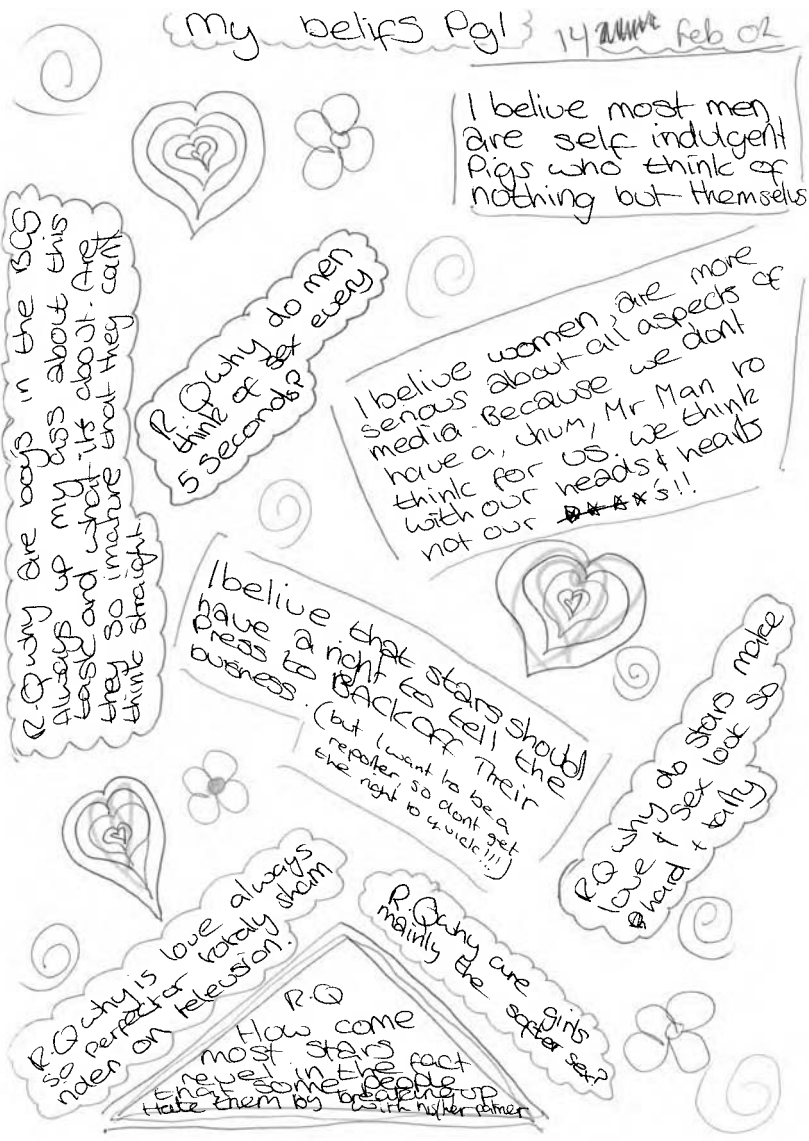 My belifs Pg1
14 Feb 02
I belive most men
are self indulgent
Pigs who think of
nothing but themselvs
R.Q why are boys in the BGS
Always up my ass about this
task and what its about. Are
they so imature that they cant
think straight
R.Q why do men
think of sex every
5 seconds?
I belive women, are more
serious about all aspects of
media. Because we dont
have a, uhum, Mr Man to
think for us. we think
with our heads & hearts
not our D***'s!!
I belive that stars should
have a right to tell the
press to BACK OFF Their
business.
(but I want to be a
reporter, so dont get
the right to quick!!!)
R.Q why do stars make
love & sex look so
hard & tally
R.Q why is love always
so perfect or totaly sham
nden on television.
R.Q why are girls
mainly the softer sex?
R.Q
How come
most stars
revel in the fact
that some people
Hate them by breaking up
with his/her partner